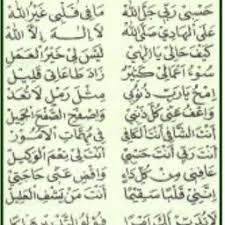 حَسْبِيْ رَبِّيْ جَلَّ اللّٰهْ مَا فِيْ قَلْبِيْ غَيْرُ اللّٰهْ
عَلَى الْهَادِيْ صَلَّى اللّٰهْ لَا اِلٰهَ اِلَّا اللّٰهْ
كَيْفَ حَالِيْ يَا اِلٰهِيْ لَيْسَ لِيْ خَيْرُ الْعَمَلْ
سُوْءُ اَعْمَالِيْ كَثِيْرٌ زَادَ طَاعَاتِيْ قَلِيْلْ
اُمْحُ يَا رَبِّ ذُنُوْبِيْ مِثْلَ رَمْلٍ لَا تُعَدْ
وَاعْفُ عَنِّيْ كُلَّ ذَنْبِيْ وَاصْفَحِ الصَّفْحَ الْجَمِيْلْ
اَنْتَ الشَّافِيْ اَنْتَ الْكَافِيْ فِيْ مُهِمَّاتِ الْاُمُوْرْ
اَنْتَ رَبِّيْ اَنْتَ حَسْبِيْ اَنْتَ لِيْ نِعْمَ الْوَكِيْلْ
عَافِنِيْ مِنْ كُلِّ دَاءٍ وَاقْضِ عَنِّيْ حَاجَتِيْ
اِنَّنِيْ قَلْبًا سَقِيْمًا اَنْتَ مَنْ يَشْفِ الْعَلِيْلْ